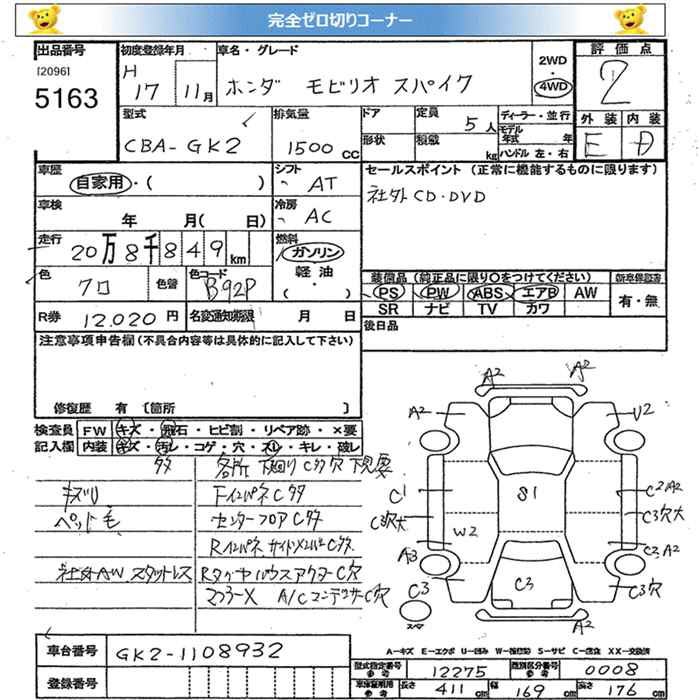 完全ゼロ切りコーナー
出品番号 初度登録年月 車名・グレード 評価点
[2096] H 2WD
5163 17 11月 ホンダ モビリオ スパイク 4WD 2
型式 排気量 ドア 定員 ディーラー・並行 外装 内装
5人 モデル年式 年
CBA-GK2 1500CC 形状 積載 kg ハンドル 左・右 E D
車歴 シフト セールスポイント (正常に機能するものに限ります)
自家用・( ) AT 社外CD・DVD
車検 冷房
年 月( 日) AC
走行 燃料
20万8千849km ガソリン
軽油
色 色替 色コード ( ・ ) 装備品 (純正品に限り○をつけてください) 新車保証書
クロ B92P PS PW ABS エアB AW 有・無
SR ナビ TV カワ
R券 12,020円 名変通知期限 月 日 後日品
注意事項申告欄(不具合内容等は具体的に記入して下さい)
修復歴 有 [箇所 ]
検査員 FW キズ・飛石・ヒビ割・リペア跡・×要
記入欄 内装 キズ・汚レ・コゲ・穴・スレ・キレ・破レ
多 各所 下回りC多穴 下見要
キズリ FインパネC多
ペット毛 センターフロアC多
社外AW スタットレス
マフラー× A/CコンデンサーC穴
A2 A2
A2 U2
C1 S1 C2 A2
C3穴大 W2 C3穴大
A3 C2,A2
C3 C3 C3穴
スペア A2
A-キズ E-エクボ U-凹み W-補修跡 S-サビ C-腐食 XX-交換済
車台番号 GK2-1108932
登録番号
型式指定番号 参考 12275 類別区分番号 参考 0008
車庫証明用 参考 長さ 411cm 幅 169cm 高さ 176cm